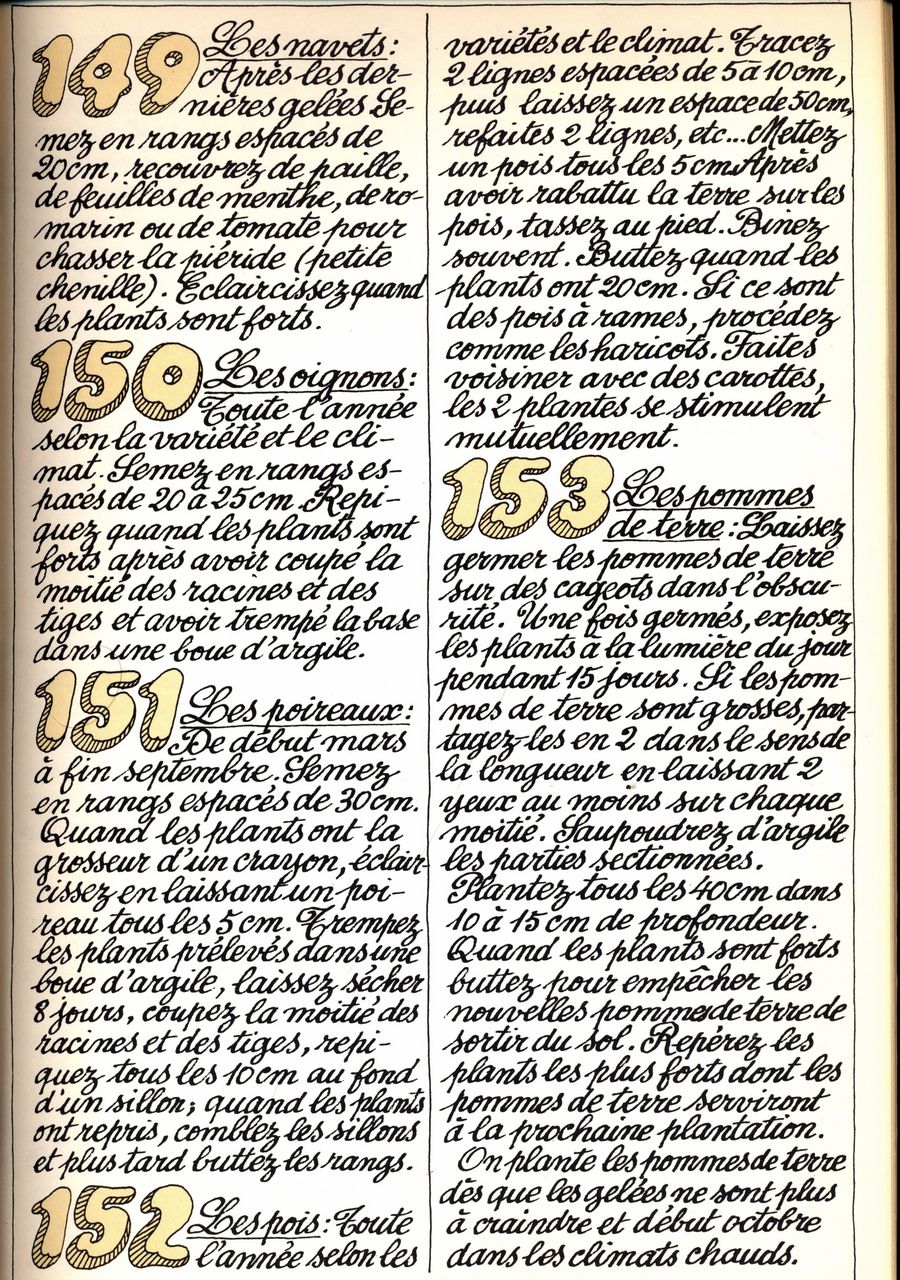 149 Les navets :
Après les der-
nières gelées Se-
mez en rangs espacés de
20cm, recouvrez de paille,
de feuilles de menthe, de ro-
marin ou de tomate pour
chasser la piéride (petite
chenille). Eclaircissez quand
les plants sont forts.
150 Les oignons :
Toute l'année
selon la variété et le cli-
mat. Semez en rangs es-
pacés de 20 à 25cm. Repi-
quez quand les plants sont
forts après avoir coupé la
moitié des racines et des
tiges et avoir trempé la base
dans une boue d'argile.
151 Les poireaux :
De début mars
à fin septembre. Semez
en rangs espacés de 30cm.
Quand les plants ont la
grosseur d'un crayon, éclair-
cissez en laissant un poi-
reau tous les 5cm. Trempez
les plants prélevés dans une
boue d'argile, laissez sécher
8 jours, coupez la moitié des
racines et des tiges, repi-
quez tous les 10cm au fond
d'un sillon; quand les plants
ont repris, comblez les sillons
et plus tard buttez les rangs.
152 Les pois : Toute
l'année selon les
variétés et le climat. Tracez
2 lignes espacées de 5 à 10cm,
puis laissez un espace de 50cm,
refaites 2 lignes, etc... Mettez
un pois tous les 5cm Après
avoir rabattu la terre sur les
pois, tassez au pied. Binez
souvent. Buttez quand les
plants ont 20cm. Si ce sont
des pois à rames, procédez
comme les haricots. Faites
voisiner avec des carottes,
les 2 plantes se stimulent
mutuellement.
153 Les pommes
de terre : Laissez
germer les pommes de terre
sur des cageots dans l'obscu-
rité. Une fois germés, exposez
les plants à la lumière du jour
pendant 15 jours. Si les pom-
mes de terre sont grosses, par-
tagez-les en 2 dans le sens de
la longueur en laissant 2
yeux au moins sur chaque
moitié. Saupoudrez d'argile
les parties sectionnées.
Plantez tous les 40cm dans
10 à 15cm de profondeur.
Quand les plants sont forts
buttez pour empêcher les
nouvelles pommes de terre de
sortir du sol. Repérez les
plants les plus forts dont les
pommes de terre serviront
à la prochaine plantation.
On plante les pommes de terre
dès que les gelées ne sont plus
à craindre et début octobre
dans les climats chauds.